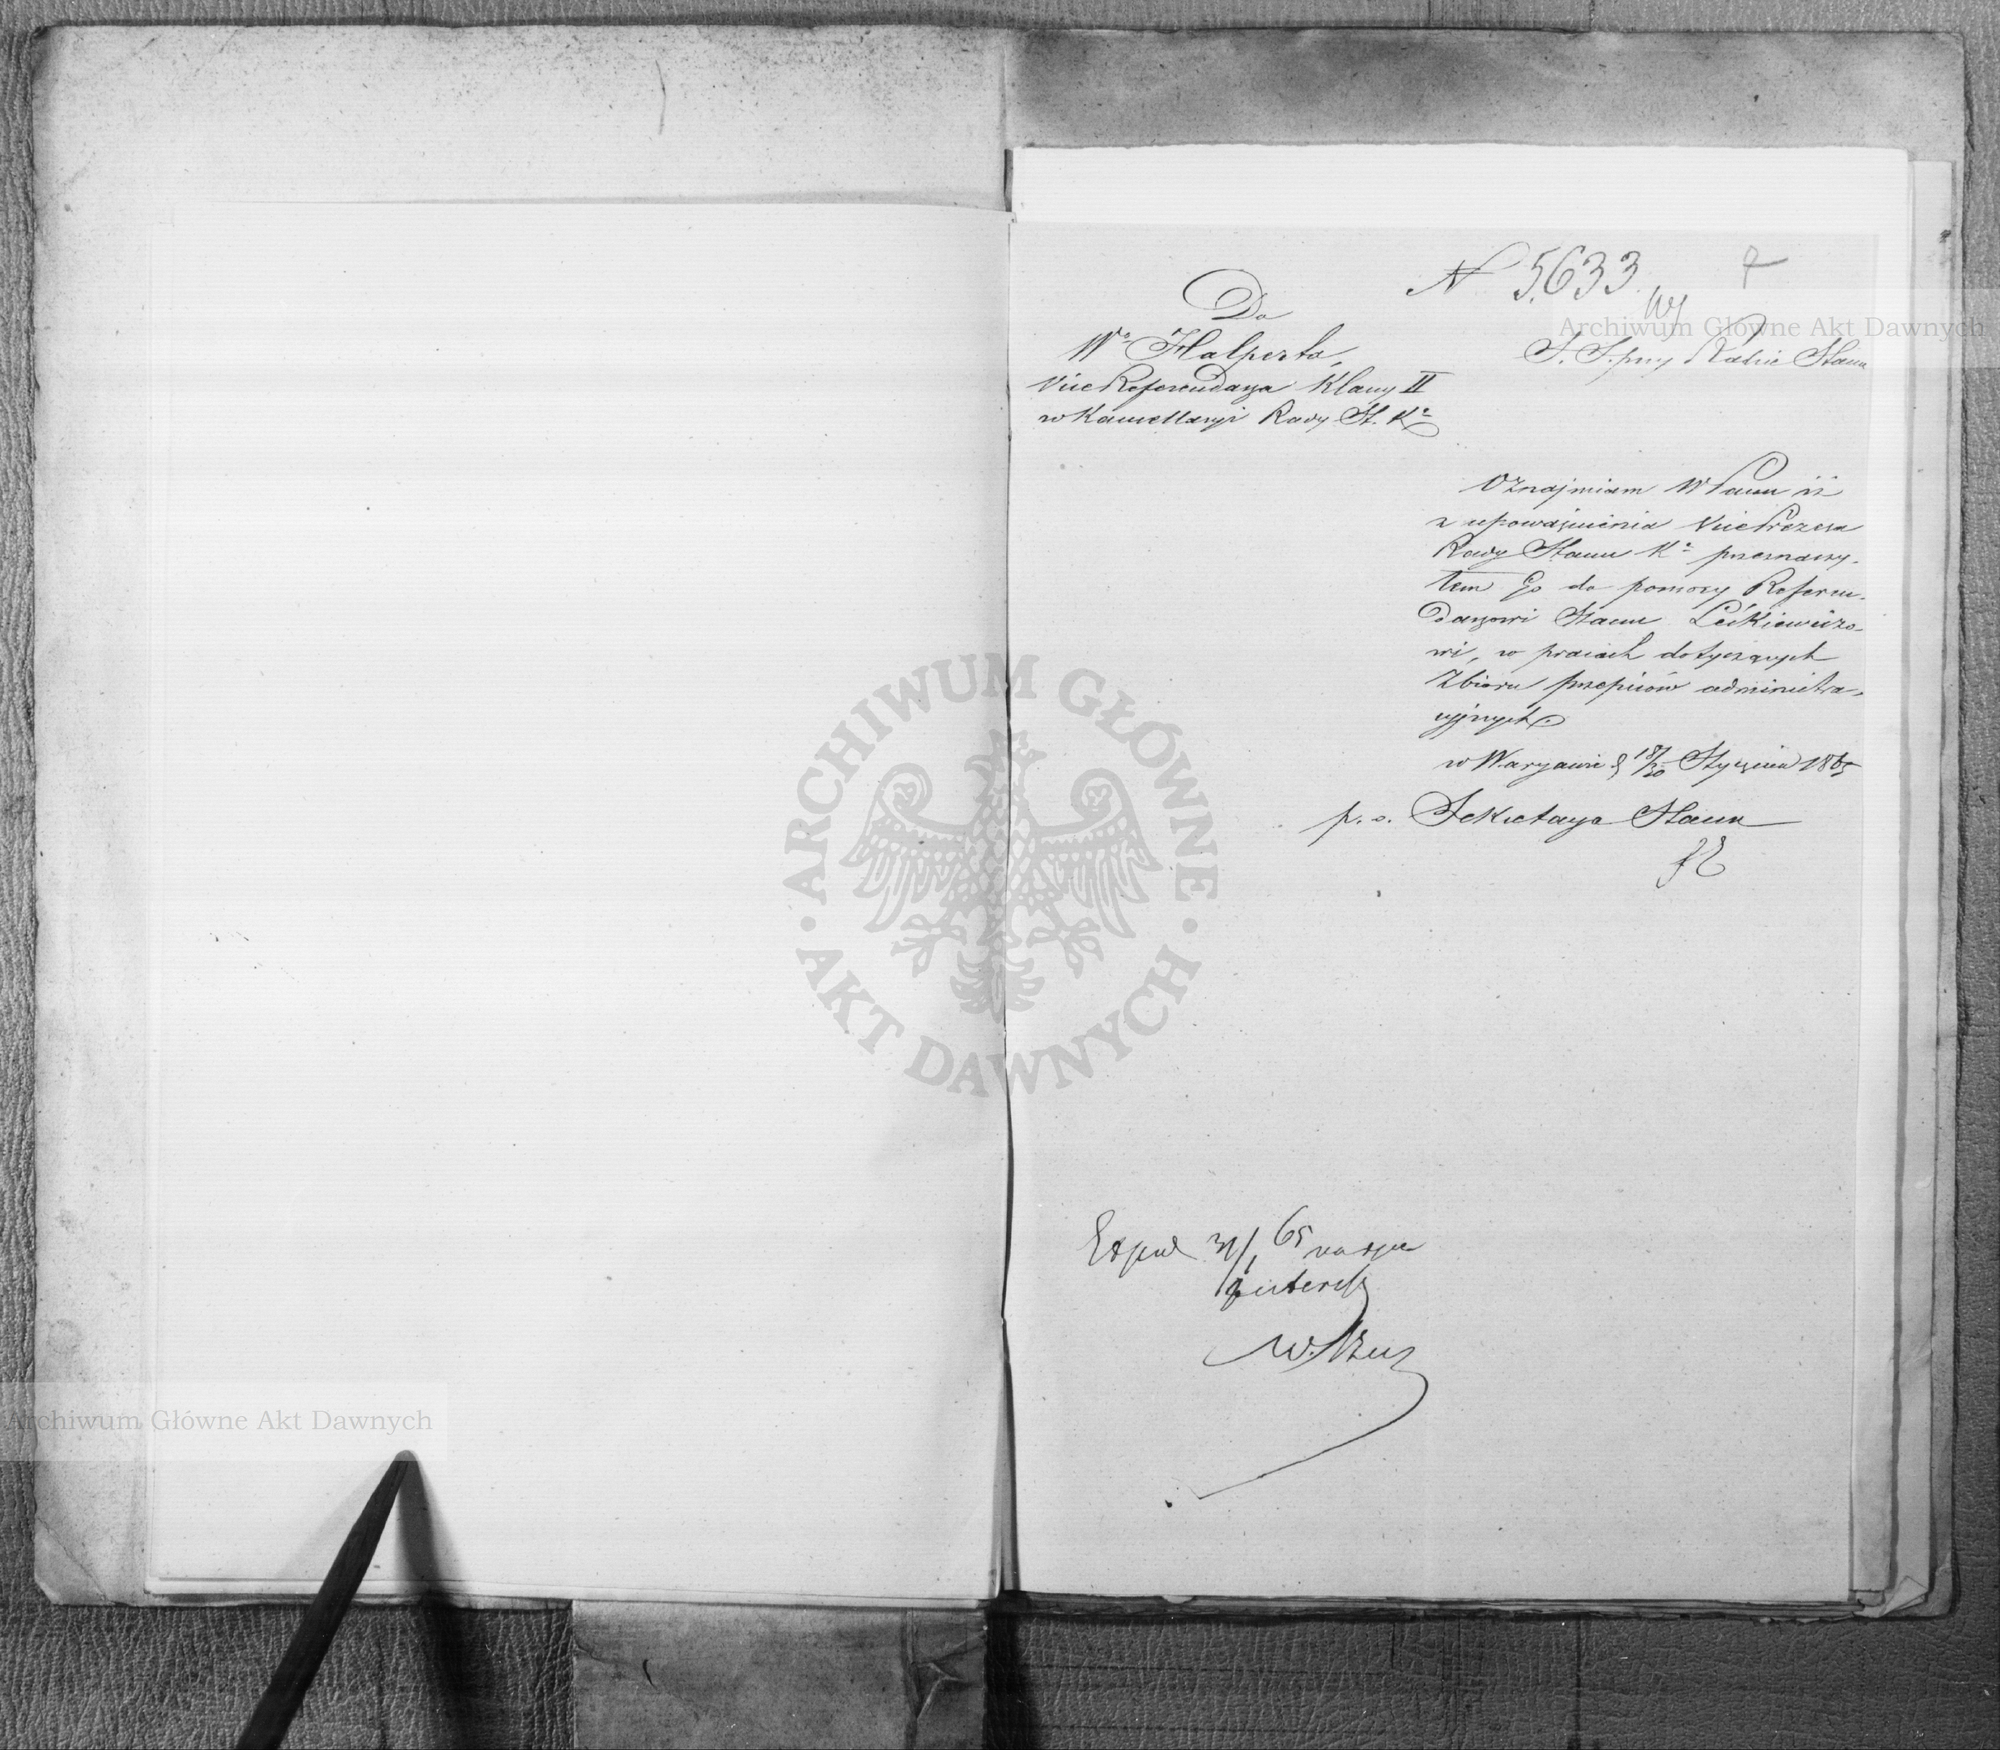 N 5633
Do
Wo Halperta,
ViceReferendarza Klassy II
w Kancellaryi Rady St. Ka
S. S. przy Radzie Stanu
Oznajmiam WPanu iż
z upoważnienia VicePrezesa
Rady Stanu Ka przeznaczy-
łem Go do pomocy Referen-
darzowi Stanu
wi, w pracach dotyczących
Zbioru przepisów administra-
cyjnych.
w Warszawie d 18/30 Stycznia 1865
p. o. Sekretarza Stanu
31/1 65
ARCHIWUM GŁÓWNE
AKT DAWNYCH
Archiwum Główne Akt Dawnych
Archiwum Główne Akt Dawnych